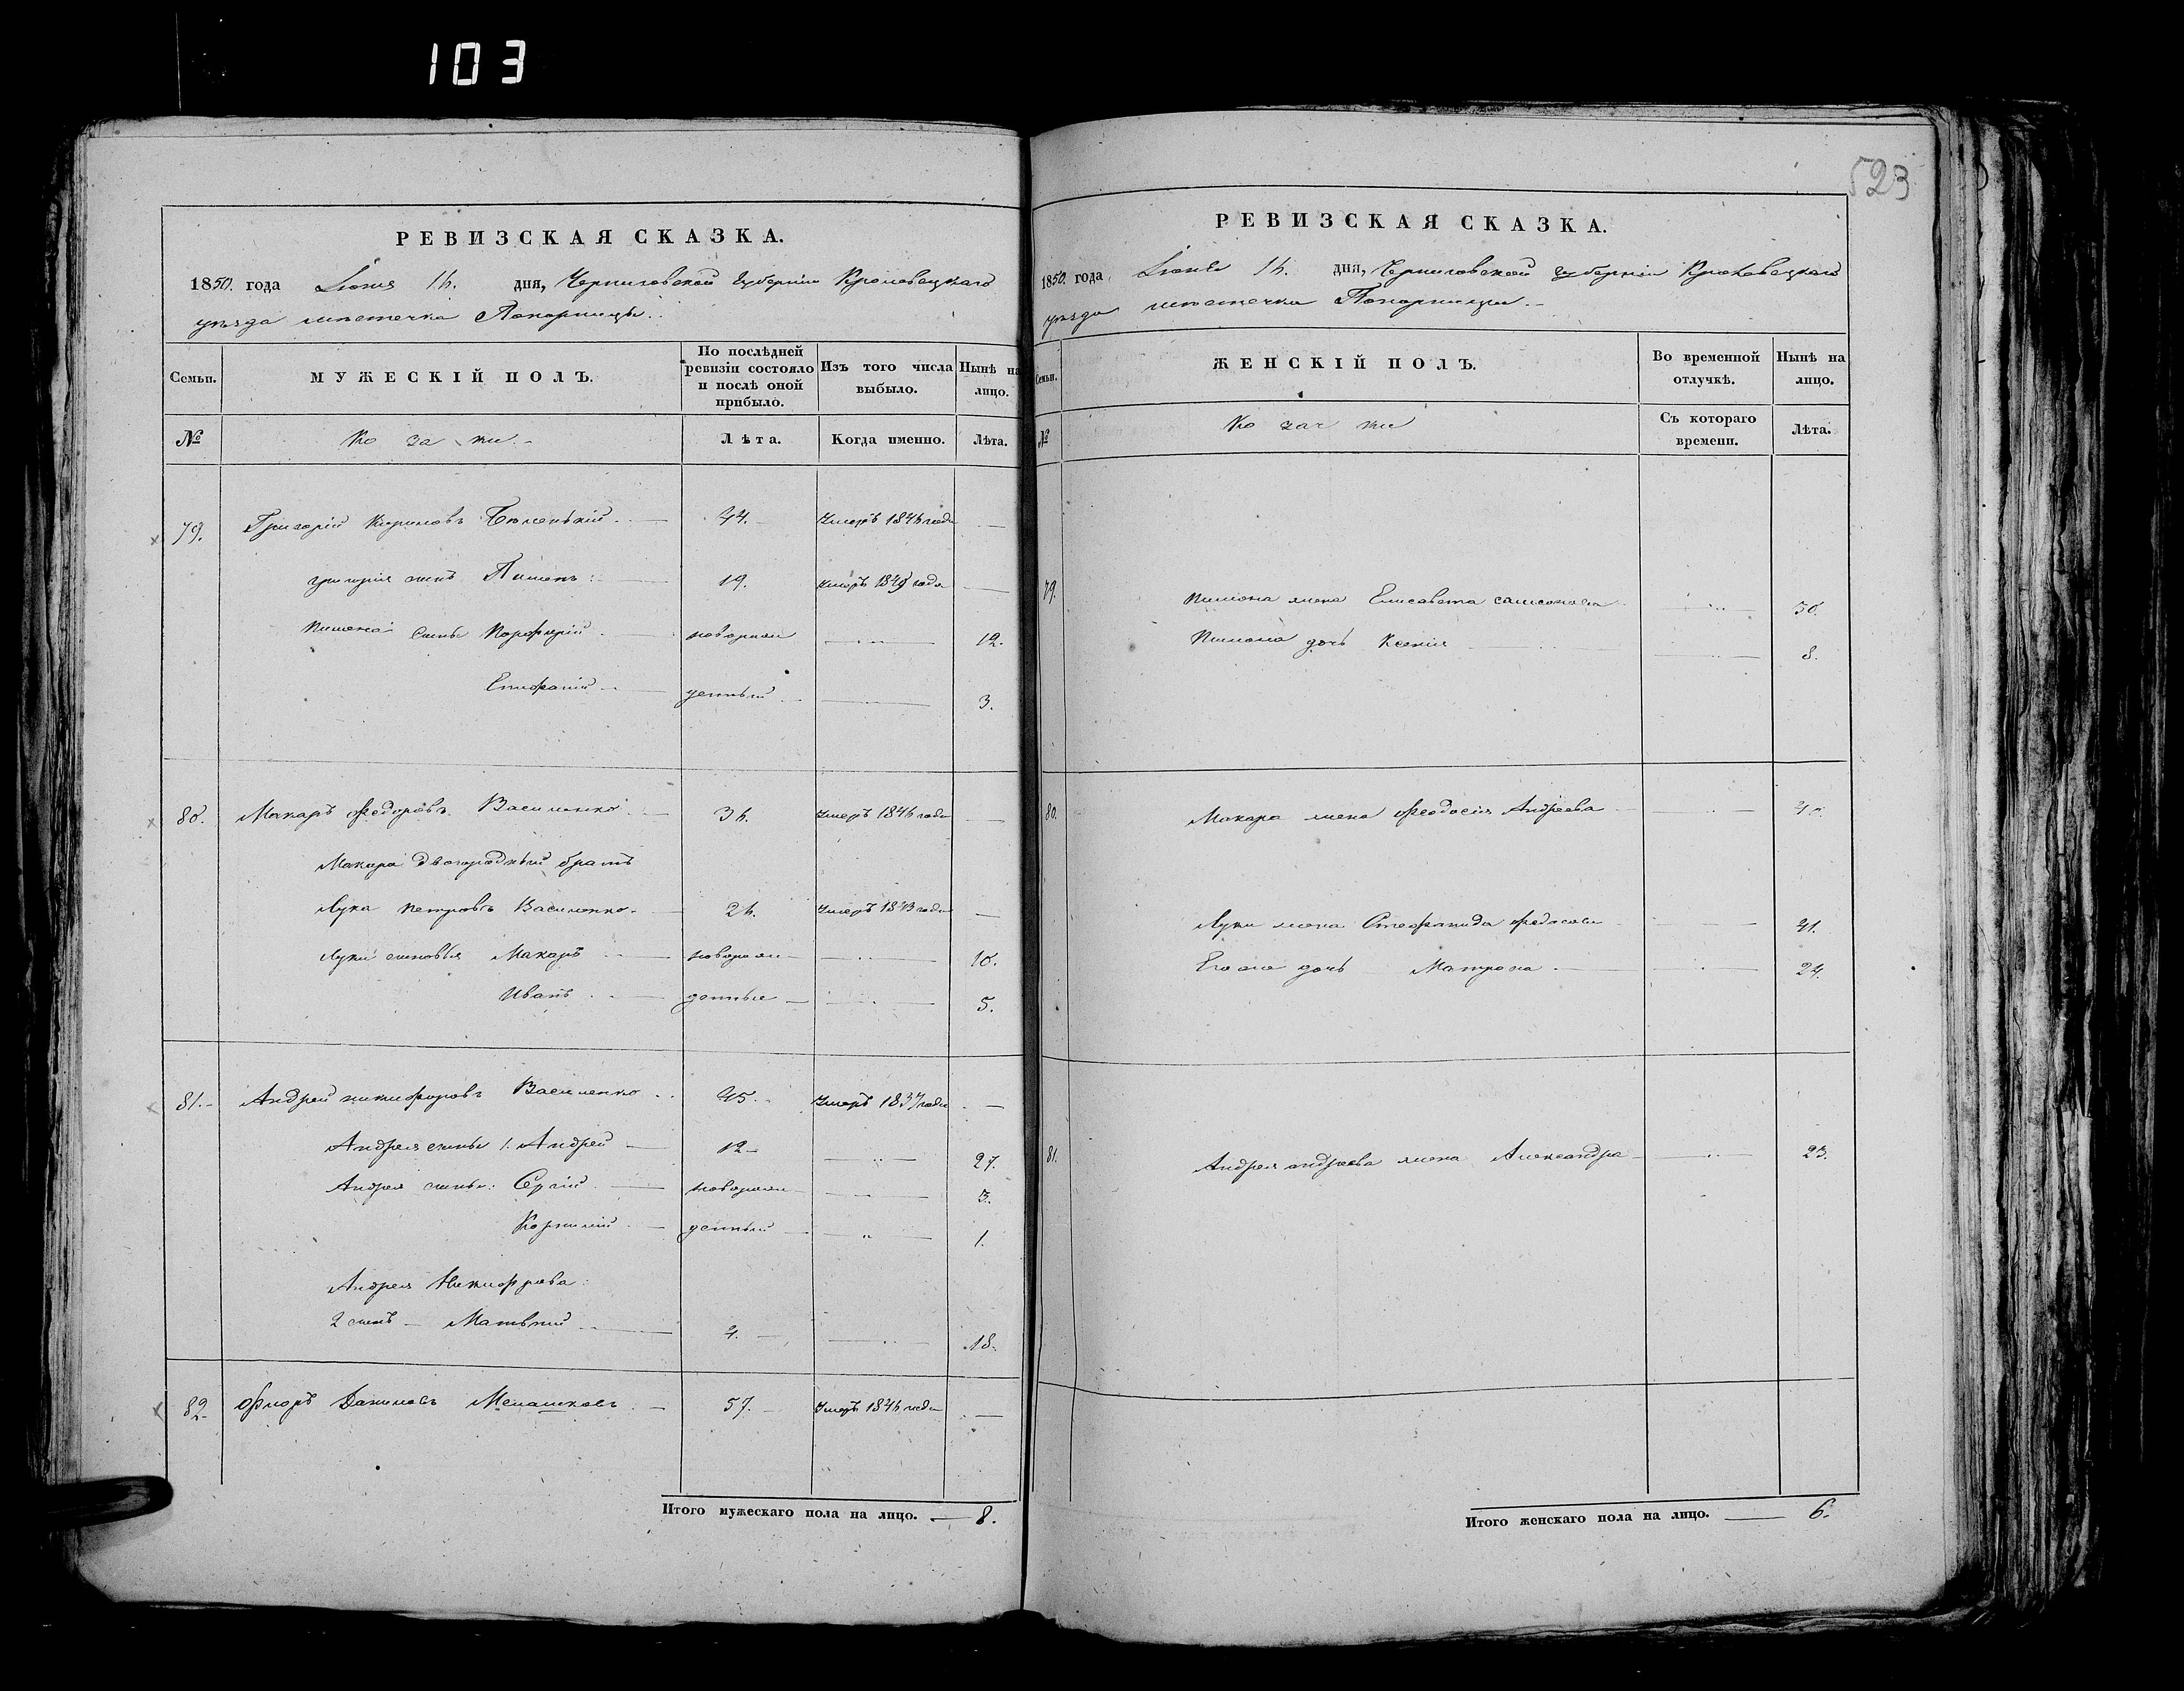 103
523
РЕВИЗСКАЯ СКАЗКА.
1850. года Іюня 16. дня, Черниговской Губерніи Кролевецкаго
уезда местечка Понорницы.
Семьи. МУЖЕСКІЙ ПОЛЪ. По послѣдней ревизіи состояло и послѣ оной прибыло. Изъ того числа выбыло. Нынѣ на лицо.
№ Козаки Лѣта. Когда именно. Лѣта.
79. Григорій Кириловъ 44. Умеръ 1846 года —
Григорія сынъ Пименъ 19. Умеръ 1849 года —
Пимена сыны Порфирій новорож 12.
Епифаній денный 3.
80. Макаръ Федоровъ Василенко 36. Умеръ 1846 года —
Макара двоюродный братъ
Лука Петровъ Василенко 26. Умеръ 1843 года —
Луки сыновья Макаръ новорож 10.
Иванъ денные 5.
81. Андрей Никифоровъ Василенко 45. Умеръ 1837 года —
Андрея сыны 1. Андрей 12 27.
Андрея сыны: Сергій новорож 3.
Корнилій денный 1.
Андрея Никифорова:
2 сынъ — Матвей 4. 18.
82. Флоръ Даниловъ 57. Умеръ 1846 года —
Итого мужескаго пола на лицо. — 8.
РЕВИЗСКАЯ СКАЗКА.
1850. года Іюня 16. дня, Черниговской Губерніи Кролевецкаго
уезда местечка Понорницы.
Семьи. ЖЕНСКІЙ ПОЛЪ. Во временной отлучкѣ. Нынѣ на лицо.
№ Козачки Съ котораго времени. Лѣта.
79. Пимона жена Елисавета Самсонова 30.
Пимона дочь Ксенія 8.
80. Макара жена Феодосія Андреева 40.
Луки жена Стефанида 41.
Его же дочь Матрона 24.
81. Андрея Андреева жена Александра 23.
Итого женскаго пола на лицо. — 6.